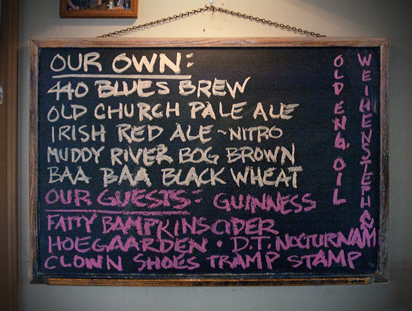 OUR OWN:
440 BLUES BREW
OLD CHURCH PALE ALE
IRISH RED ALE ~ NITRO
MUDDY RIVER BOG BROWN
BAA BAA BLACK WHEAT
OUR GUESTS: GUINNESS
FATTY BAMPKINS CIDER
HOEGAARDEN · D.T. NOCTURNAM
CLOWN SHOES TRAMP STAMP
OLD ENG. OIL
WEIHENSTEPHAN